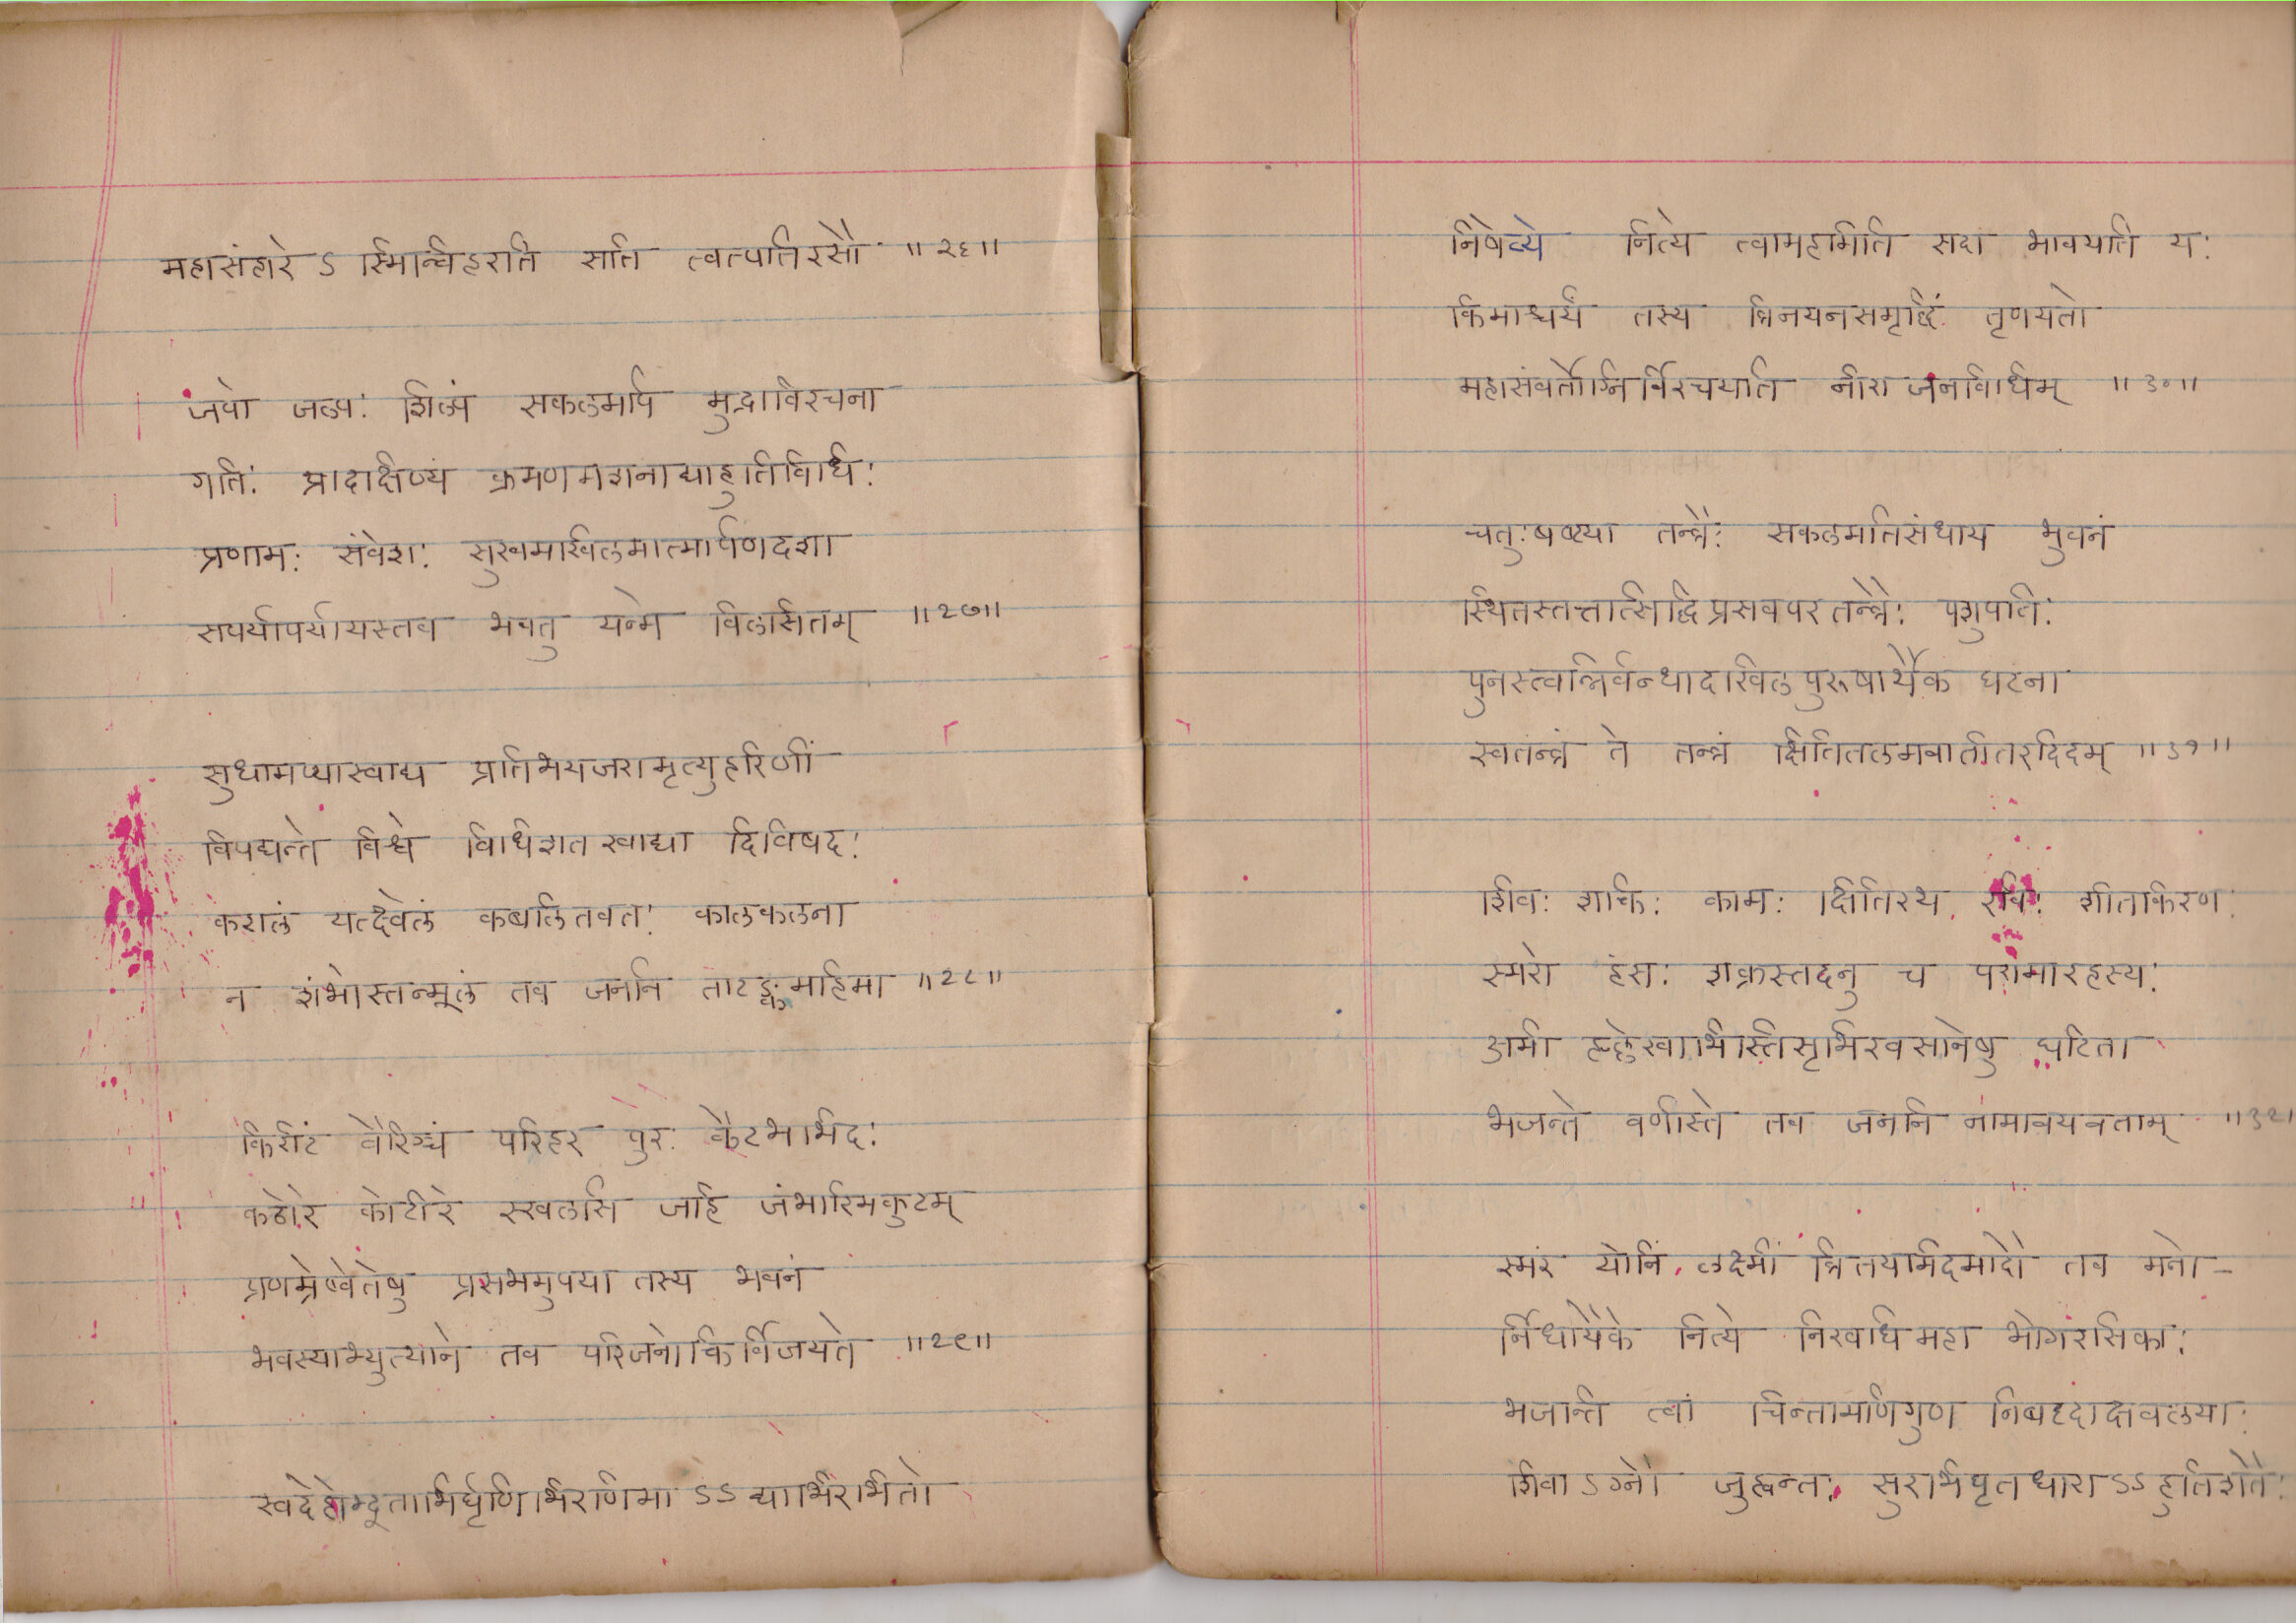 महासंहारे ऽ स्मिन्विहरति सति त्वत्पतिरसौ ॥२६॥
जपो जल्पः शिल्पं सकलमपि मुद्राविरचना
गतिः प्रादक्षिण्यं क्रमणमशनाद्याहुतिविधिः
प्रणामः संवेशः सुखमखिलमात्मार्पणदशा
सपर्यापर्यायस्तव भवतु यन्मे विलसितम् ॥२७॥
सुधामप्यास्वाद्य प्रतिभयजरामृत्युहरिणीं
विपद्यन्ते विश्वे विधिशतखाद्या दिविषदः
करालं यत्क्ष्वेलं कबलितवतः कालकलना
न शंभोस्तन्मूलं तव जननि ताटङ्कमहिमा ॥२८॥
किरीटं वैरिञ्चं परिहर पुरः कैटभभिदः
कठोरे कोटीरे स्खलसि जहि जंभारिमकुटम्
प्रणम्रेष्वेतेषु प्रसभमुपया तस्य भवनं
भवस्याभ्युत्थाने तव परिजनोक्तिर्विजयते ॥२९॥
स्वदेहोद्भूताभिर्घृणिभिरणिमा ऽऽ द्याभिरभितो
निषेव्ये नित्ये त्वामहमिति सदा भावयति यः
किमाश्चर्यं तस्य त्रिनयनसमृद्धिं तृणयतो
महासंवर्ताग्निर्विरचयति नीराजनविधिम् ॥३०॥
चतुःषष्ट्या तन्त्रैः सकलमतिसंधाय भुवनं
स्थितस्तत्तत्सिद्धिप्रसवपरतन्त्रैः पशुपतिः
पुनस्त्वन्निर्बन्धादखिलपुरुषार्थैक घटना
स्वतन्त्रं ते तन्त्रं क्षितितलमवातीतरदिदम् ॥३१॥
शिवः शक्तिः कामः क्षितिरथ रविः शीतकिरणः
स्मरो हंसः शक्रस्तदनु च परामारहरयः
अमी हृल्लेखाभिस्तिसृभिरवसानेषु घटिता
भजन्ते वर्णास्ते तव जननि नामावयवताम् ॥३२॥
स्मरं योनिं लक्ष्मीं त्रितयमिदमादौ तव मनो-
र्निधायैके नित्ये निरवधि महा भोगरसिकाः
भजन्ति त्वां चिन्तामणिगुण निबद्धाक्षवलयाः
शिवा ऽ ग्नौ जुह्वन्तः सुरभिघृतधारा ऽऽ हुतिशतैः